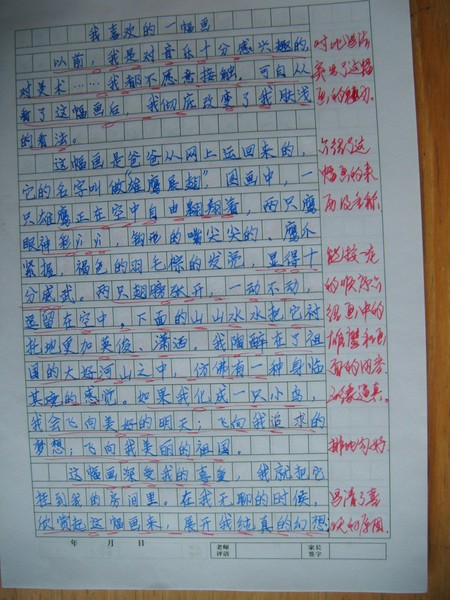 我喜欢的一幅画
以前，我是对音乐十分感兴趣的，
对美术……我都不愿意接触。可自从
看了这幅画后，我彻底改变了我肤浅
的看法。
这幅画是爸爸从网上运回来的，
它的名字叫做“雄鹰展翅”，图画中，一
只雄鹰正在空中自由翱翔着，两只鹰
眼神，钢形的嘴尖尖的、鹰爪
紧握，褐色的羽毛棕的发亮，显得十
分威武。两只翅膀张开，一动不动，
逗留在空中。下面的山山水水把它衬
托地更加英俊、潇洒。我陶醉在了祖
国的大好河山之中，仿佛有一种身临
其境的感觉。如果我化成一只小鸟，
我会飞向美好的明天；飞向我追求的
梦想；飞向我美丽的祖国。
这幅画深受我的喜爱，我就把它
挂到我的房间里。在我无聊的时候，
欣赏起这幅画来，展开我纯真的幻想
年 月 日
老师
评语
家长
签字
对比写法
突出了这幅
画的魅力。
介绍了这
幅画的来
历及名称
能按一定
的顺序介
绍画中的
雄鹰和画
面的内容
想象逼真。
排比句好
写清了喜
欢的原因